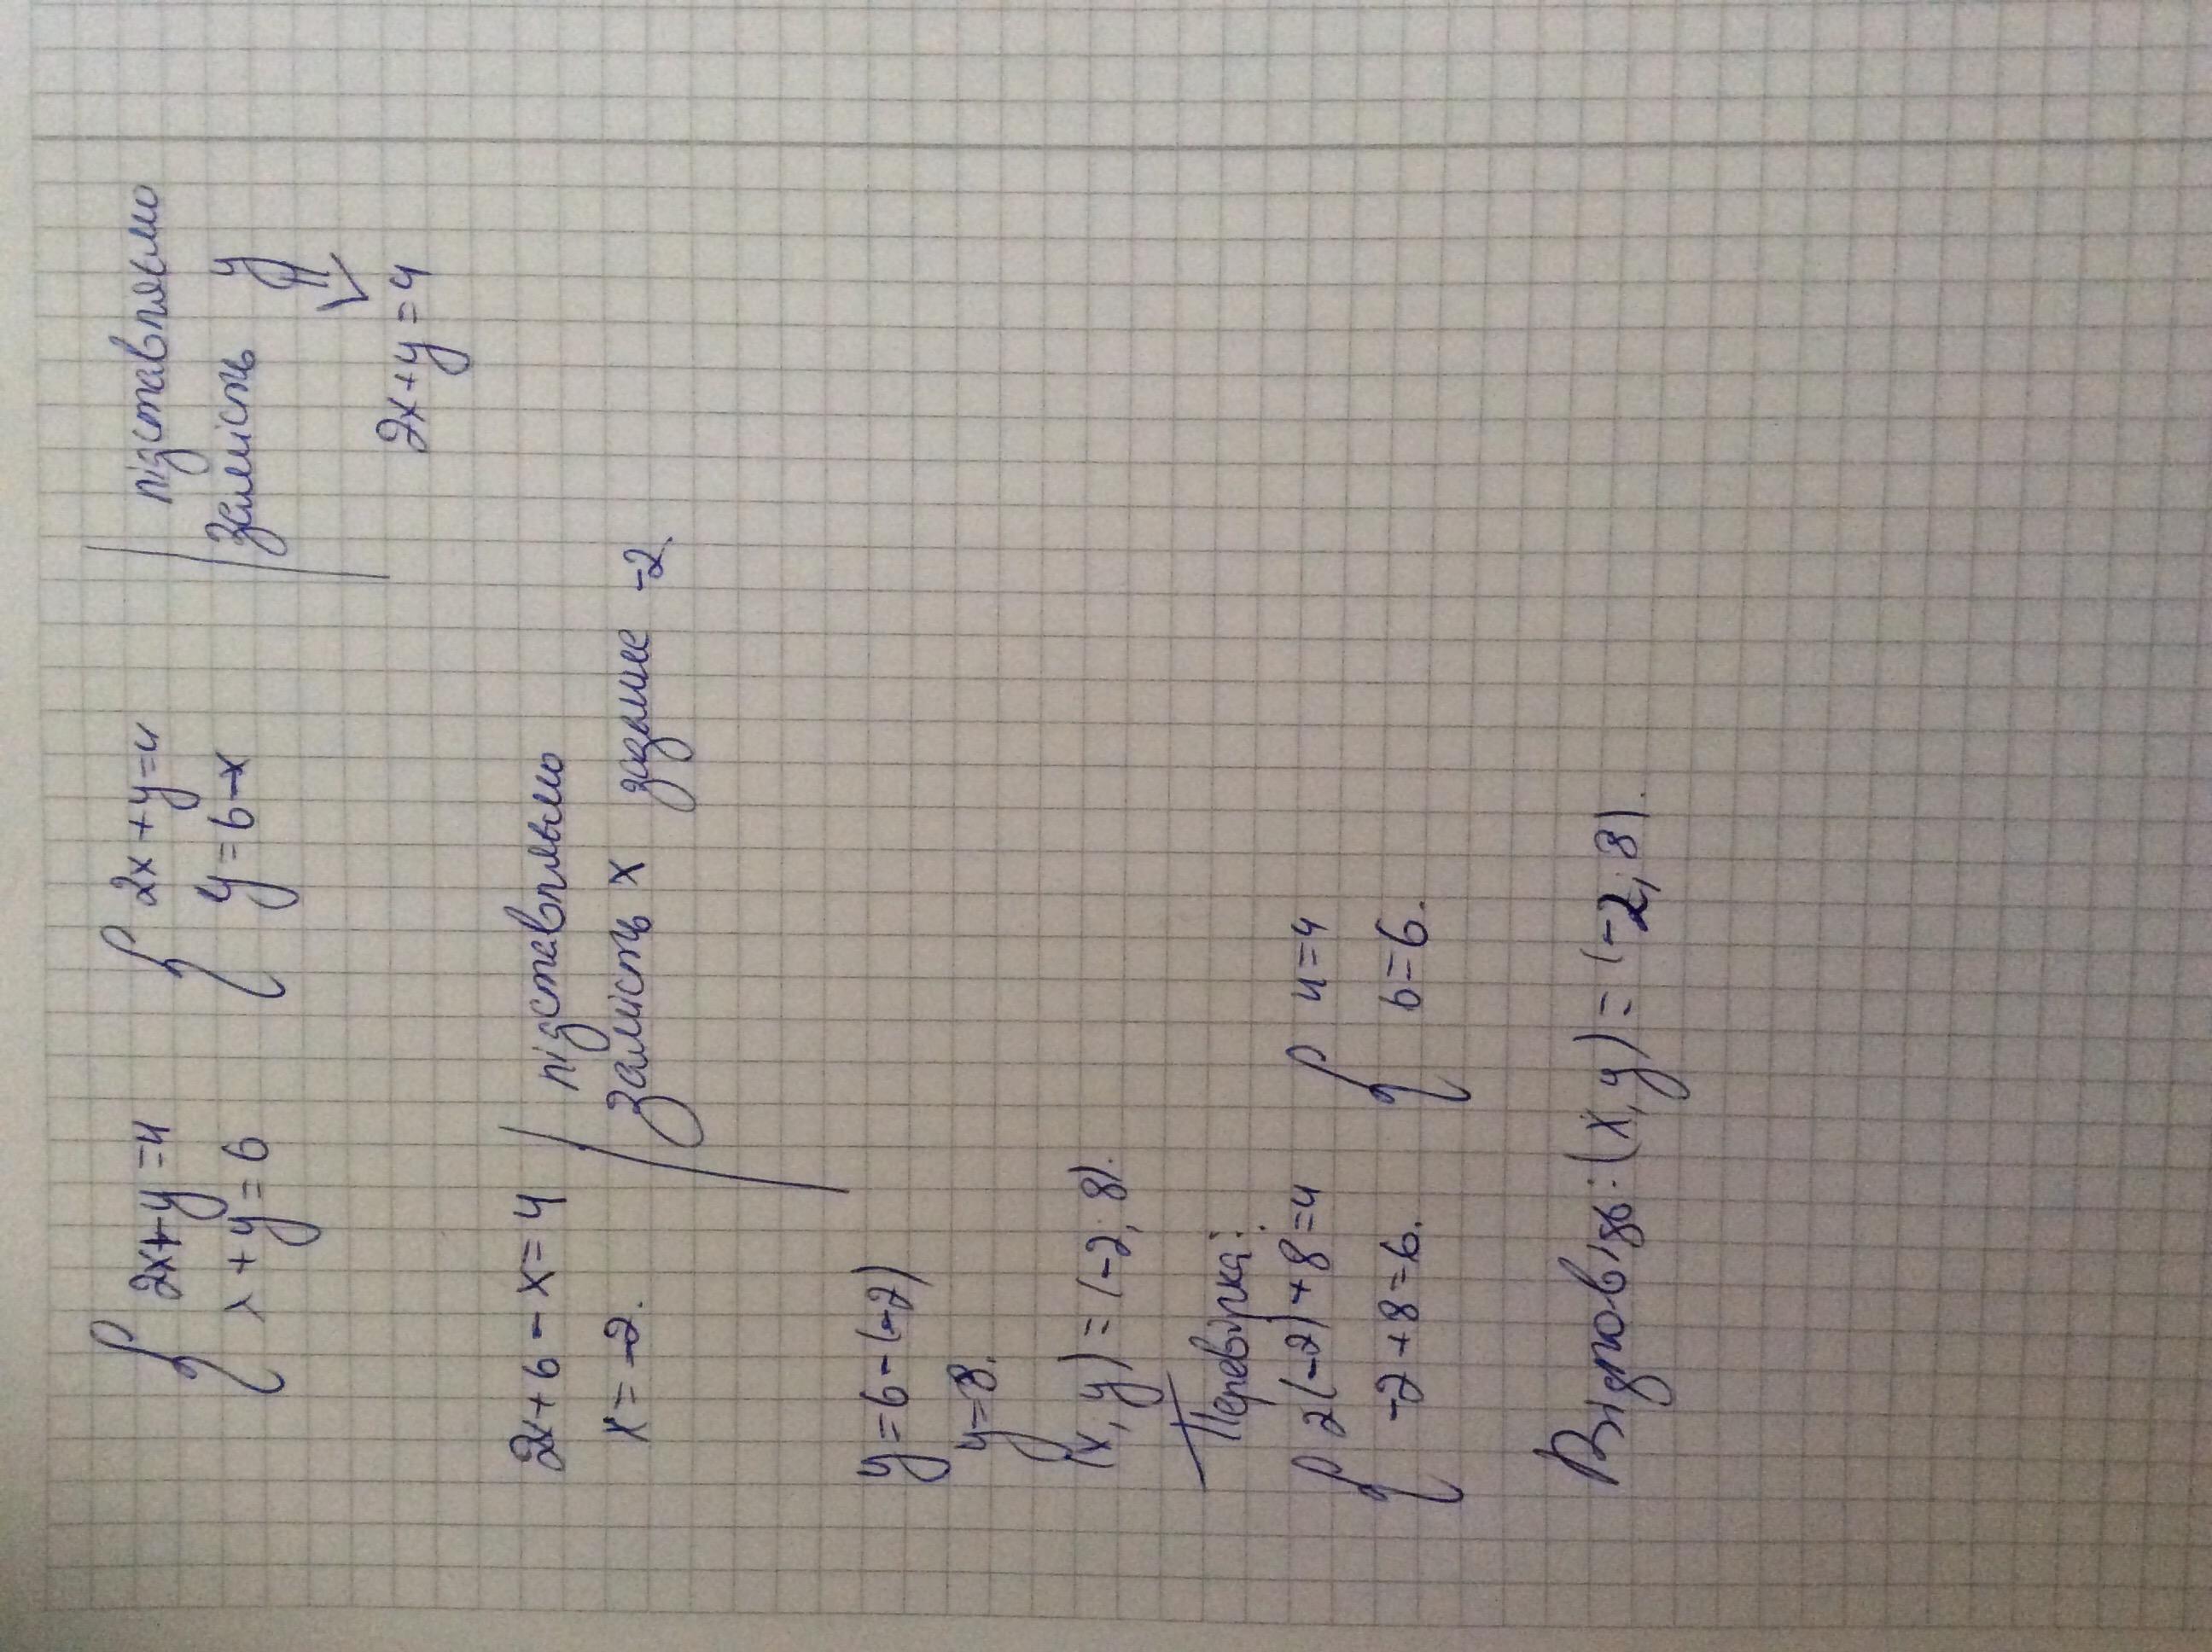 { 2x+y=4
x+y=6
{ 2x+y=4
y=6-x
підставляємо
замість y
2x+y=4
2x+6-x=4
x=-2.
підставляємо
замість x -2.
y=6-(-2)
y=8.
(x,y)=(-2; 8).
Перевірка:
{ 2(-2)+8=4
-2+8=6.
{ 4=4
6=6.
Відповідь: (x,y)=(-2; 8).